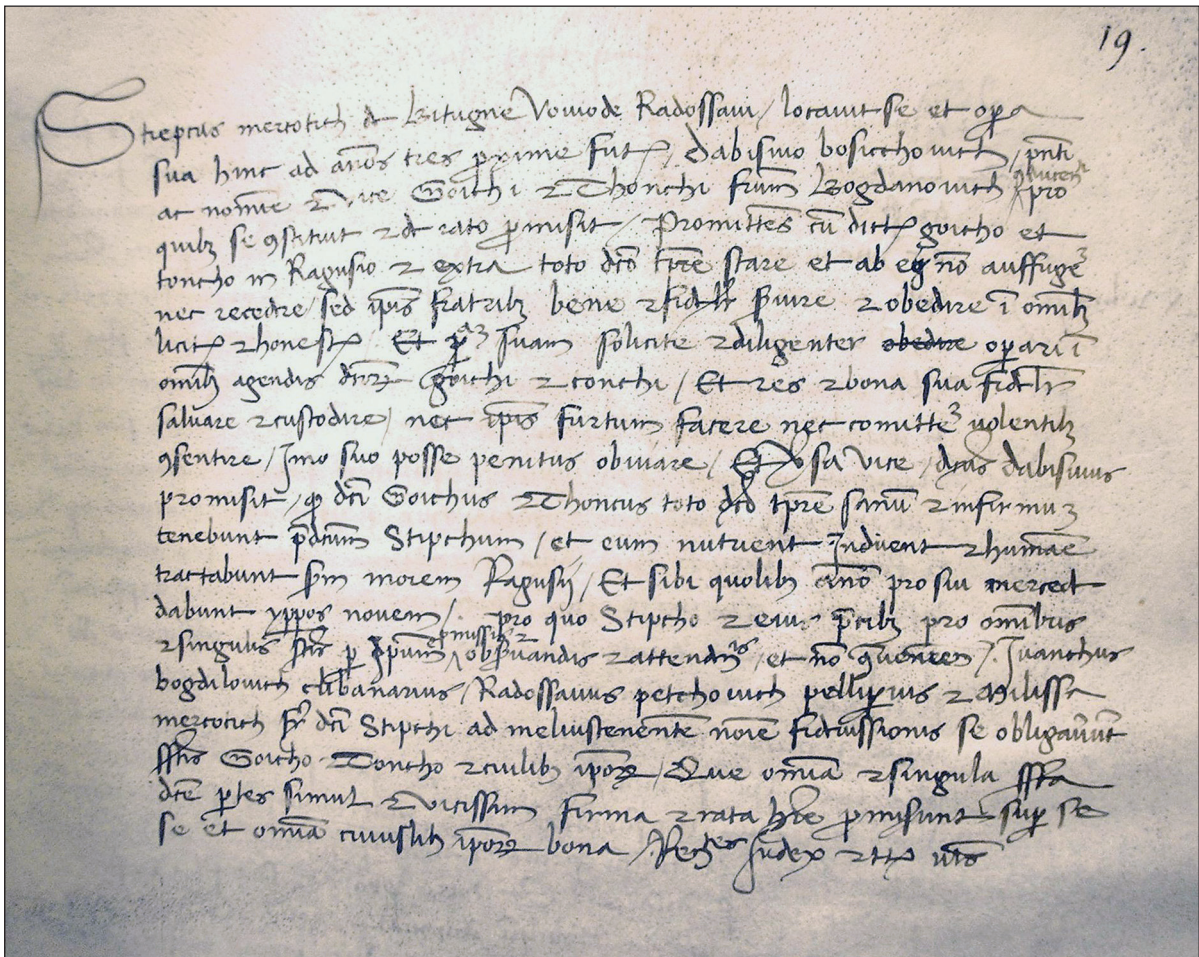 19.
Stiepcus mercotich de Bitugne Voivode Radossavi / locavit se et opa
sua hinc ad anos tres pxime fut / dabisivo bosicchovich / pnti
ac nomine & vice Goichi & Thonchi frum Bogdanovich / pro
quib se 9stituit & de rato pmisit / Promittes cu dict goicho et
toncho in Ragusio & extra toto dco tpre stare et ab eis no auffuge
nec recedre / sed ipis fratrib bene & fidelr svire & obedire i omib
licit & honest Et suam solicite & diligenter obedire opari i
omib agendis dcor goichi & tonchi / Et res & bona sua fidelr
salvare & custodire / nec ipis furtum facere nec comitte volentib
9sentire / Imo suo posse penitus obviare / Et vsa vice / dcus dabisivus
promisit / q dci Goichus & Thoncus toto dco tpre sanu & infirmuz
tenebunt pdcum Stipchum / et eum nutrient Induent & humae
tractabunt sm morem Ragusij / Et sibi quolib ano pro sui merced
dabunt yppos novem / . pro quo Stipcho & eius pcib pro omibus
& singulis scts p ipum obsvandis & attendis / et no / . Ivanchus
bogdilovich clibanarius / Radossavus petchovich pellipius & Milissa
mercotich fr dci Stipchi ad meliustenente noie fideiussionis se obligavut
sscts Goicho Toncho & cuilib ipor / Que omia & singula sscta
dce ptes simul & vicissim firma & rata hre pmisunt sup se
se et omia cuiuslib ipor bona / Ren tes Iudex & tt uts